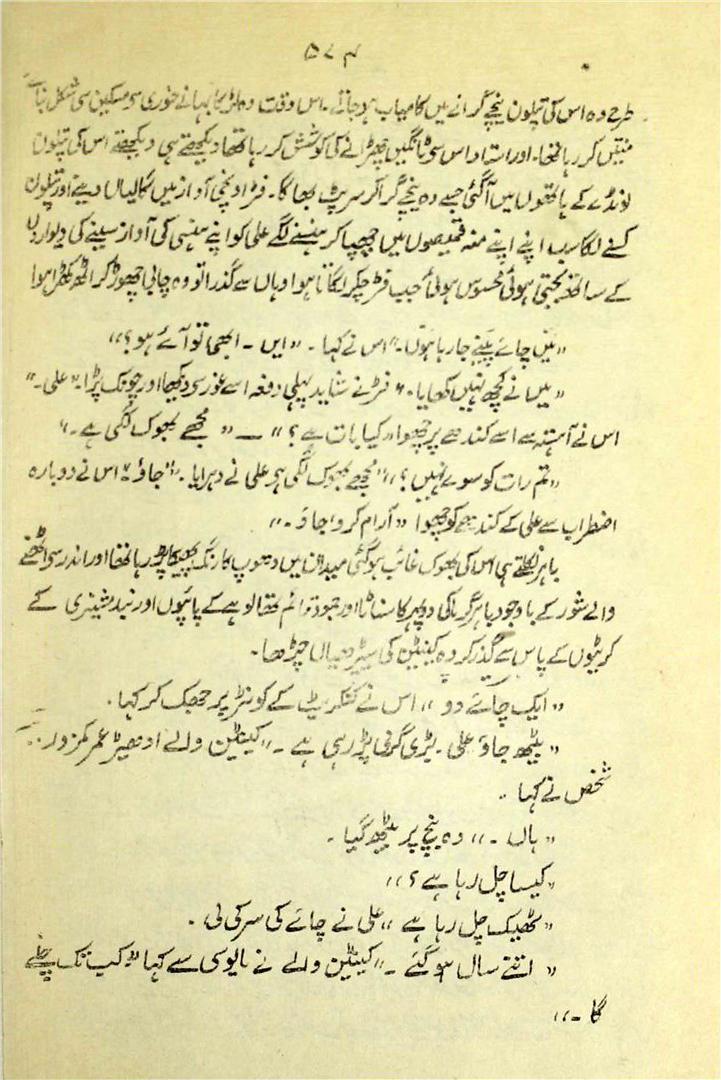 ۵۷۴
طرح وہ اس کی پتلون نیچے گرانے میں کامیاب ہو جائے۔ اس وقت وہ بڑا نہانے خوری سی مسکین سی شکل بنائے
منتیں کر رہا تھا۔ اور استاد اس سی ٹانگیں چھڑانے کی کوشش کر رہا تھا دیکھتے ہی دیکھتے اس کی پتلون
لونڈے کے ہاتھوں میں آگئی جسے وہ نیچے گرا کر سرپٹ بھاگا۔ فرڈ اونچی آواز میں گالیاں دینے اور پتلون
کسنے لگا سب اپنے اپنے منہ قمیصوں میں چھپا کر ہنسنے لگے علی کو اپنے ہنسی کی آواز سینے کی دیواروں
کے ساتھ بجتی ہوئی محسوس ہوئی جب فرڈ چکر لگاتا ہوا وہاں سے گذرا تو وہ چابی چھوڑ کر اٹھ کھڑا ہوا
”میں چائے پینے جا رہا ہوں۔“ اس نے کہا۔ ”ایں ۔ ابھی تو آئے ہو؟“
”میں نے کچھ نہیں کھایا۔“ فرڈ نے شاید پہلی دفعہ اسے غور سی دیکھا اور چونک پڑا۔ ”علی۔“
اس نے آہستہ سے اسے کندھے پر چھوا، ”کیا بات ہے؟“ — ”مجھے بھوک لگی ہے۔“
”تم رات کو سوئے نہیں؟“ ”مجھے بھوک لگی ہی علی نے دہرایا۔“ ”جاؤ“ اس نے دوبارہ
اضطراب سے علی کے کندھے کو چھوا ”آرام کرو، جاؤ۔“
باہر نکلتے ہی اس کی بھوک غائب ہوگئی میدان میں دھوپ کا رنگ پھیکا پڑ رہا تھا اور اندر سی اٹھنے
والے شور کے باوجود باہر گرما کی دوپہر کا سناٹا اور جمود قائم تھا لوہے کے پائپوں اور نیز مشینری کے
کریٹوں کے پاس سے گذر کر وہ کینٹین کی سیڑھیاں چڑھا۔
”ایک چائے دو“ اس نے کنکریٹ کے کونٹر پر جھک کر کہا۔
”بیٹھ جاؤ علی۔ بڑی گرمی پڑ رہی ہے۔“ کینٹین والے ادھیڑ عمر کمزور
شخص نے کہا۔
”ہاں۔“ وہ بنچ پر بیٹھ گیا۔
”کیسا چل رہا ہے؟“
”ٹھیک چل رہا ہے“ علی نے چائے کی سرکی لی۔
”اتنے سال ہو گئے۔“ کینٹین والے نے مایوسی سے کہا ”کب تک چلے
گا۔“